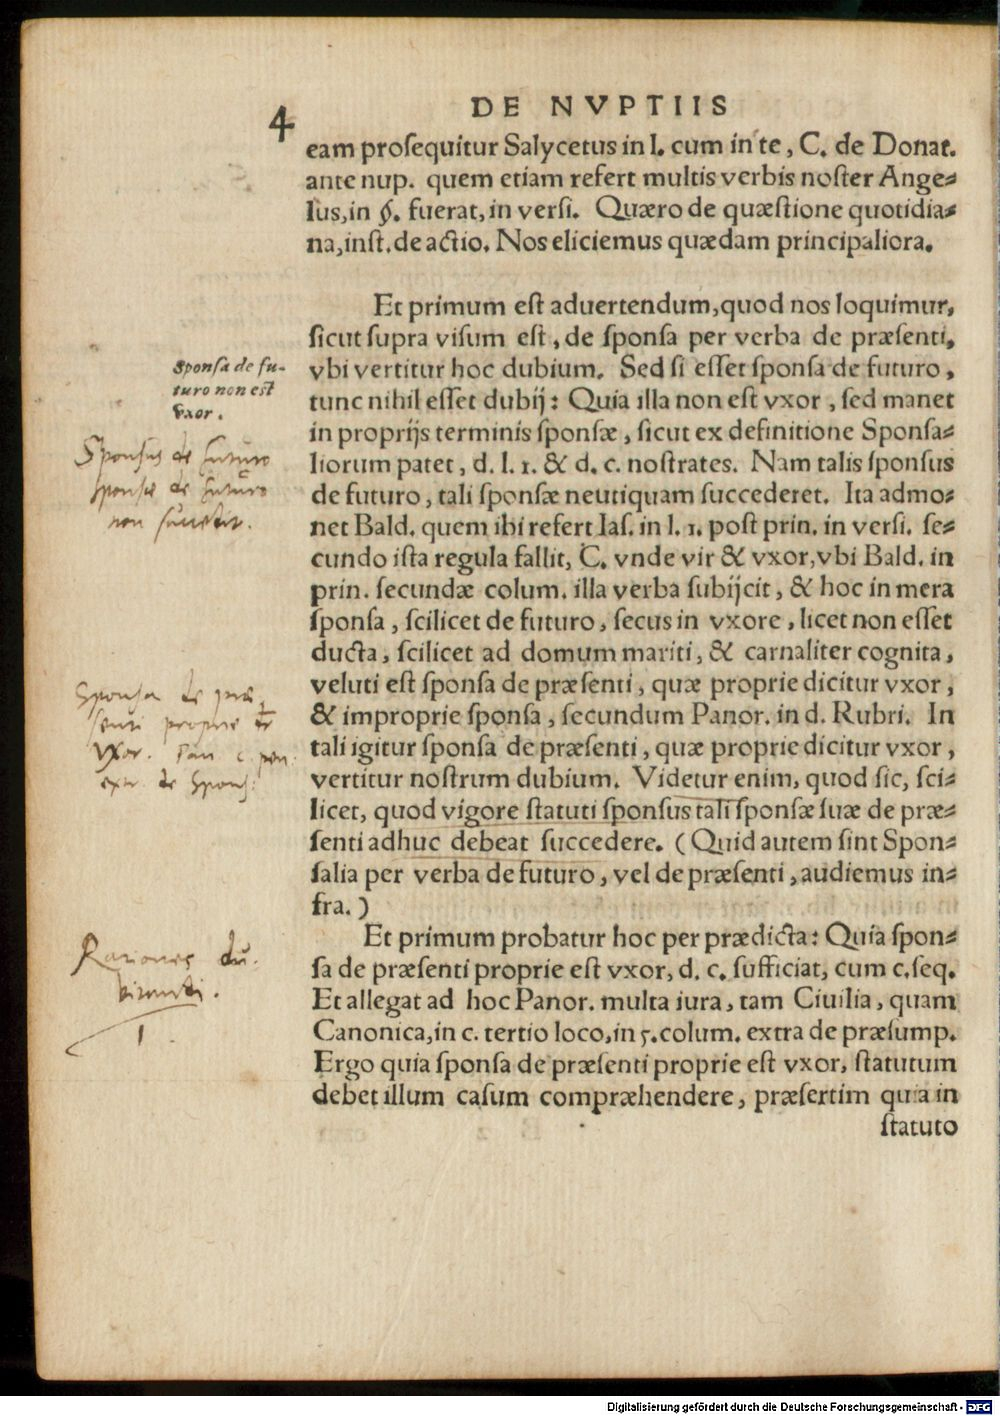 4
DE NVPTIIS
eam proſequitur Salycetus in l. cum in te, C. de Donat.
ante nup. quem etiam refert multis verbis noſter Ange⸗
lus, in §. fuerat, in verſi. Quæro de quæſtione quotidia⸗
na, inſt. de actio. Nos eliciemus quædam principaliora.
Et primum eſt aduertendum, quod nos loquimur,
ſicut ſupra viſum eſt, de ſponſa per verba de præſenti,
vbi vertitur hoc dubium. Sed ſi eſſet ſponſa de futuro,
tunc nihil eſſet dubij: Quia illa non eſt vxor, ſed manet
in proprijs terminis ſponſæ, ſicut ex definitione Sponſa⸗
liorum patet, d. l. 1. & d. c. noſtrates. Nam talis ſponſus
de futuro, tali ſponſæ neutiquam ſuccederet. Ita admo⸗
net Bald. quem ibi refert Iaſ. in l. 1. poſt prin. in verſi. ſe⸗
cundo iſta regula fallit, C. vnde vir & vxor, vbi Bald. in
prin. ſecundæ colum. illa verba ſubijcit, & hoc in mera
ſponſa, ſcilicet de futuro, ſecus in vxore, licet non eſſet
ducta, ſcilicet ad domum mariti, & carnaliter cognita,
veluti eſt ſponſa de præſenti, quæ proprie dicitur vxor,
& improprie ſponſa, ſecundum Panor. in d. Rubri. In
tali igitur ſponſa de præſenti, quæ proprie dicitur vxor,
vertitur noſtrum dubium. Videtur enim, quod ſic, ſci⸗
licet, quod vigore ſtatuti ſponſus tali ſponſæ ſuæ de præ⸗
ſenti adhuc debeat ſuccedere. (Quid autem ſint Spon⸗
ſalia per verba de futuro, vel de præſenti, audiemus in⸗
fra.)
Et primum probatur hoc per prædicta: Quia ſpon⸗
ſa de præſenti proprie eſt vxor, d. c. ſufficiat, cum c. ſeq.
Et allegat ad hoc Panor. multa iura, tam Ciuilia, quam
Canonica, in c. tertio loco, in 5. colum. extra de præſump.
Ergo quia ſponſa de præſenti proprie eſt vxor, ſtatutum
debet illum caſum compræhendere, præſertim quia in
ſtatuto
Sponſa de fu-
turo non est
vxor.
Sponsus de futuro
sponsæ de futuro
non succedit.
Sponsa de præ
senti proprie
vxor. Pan c.
extr. de Spons.
Rationes du
bitandi.
1
Digitalisierung gefördert durch die Deutsche Forschungsgemeinschaft - DFG